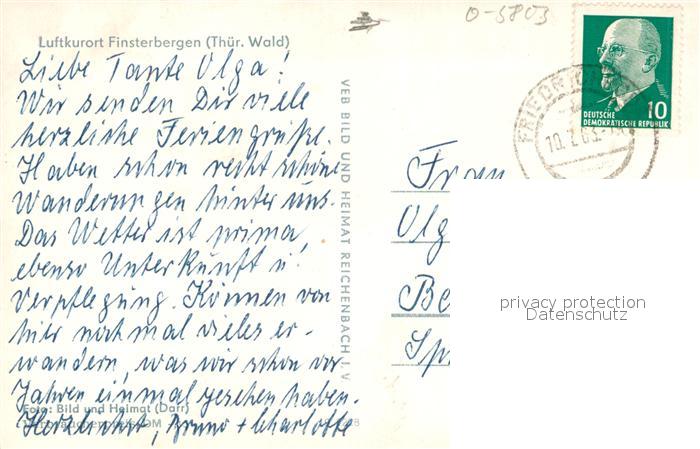 O-5803
Luftkurort Finsterbergen (Thür. Wald)
Liebe Tante Olga!
Wir senden Dir viele
herzliche Feriengrüße.
Haben schon recht schöne
Wanderungen hinter uns.
Das Wetter ist prima,
ebenso Unterkunft u.
Verpflegung. Können von
hier noch mal vieles er-
wandern, was wir schon vor
Jahren einmal gesehen haben.
Foto: Bild und Heimat (Darr)
Herzlichst, Bruno + Charlotte
VEB BILD UND HEIMAT REICHENBACH I. V
DEUTSCHE
DEMOKRATISCHE REPUBLIK
10
Frau
Olg
Be
privacy protection
Datenschutz